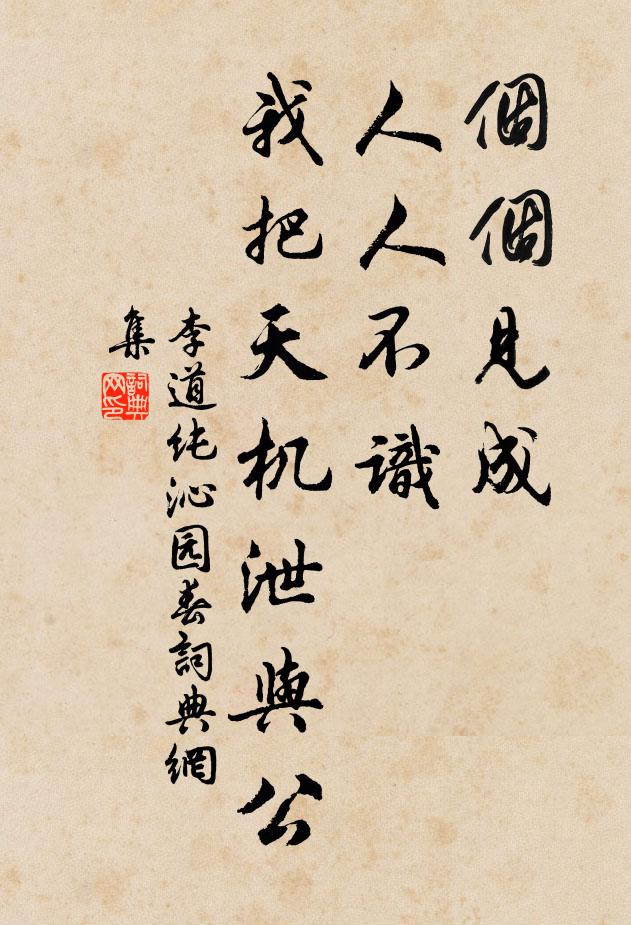 個個見成
人人不識
我把天机泄與公
李道纯沁园春詞典網
集
詞典
网印